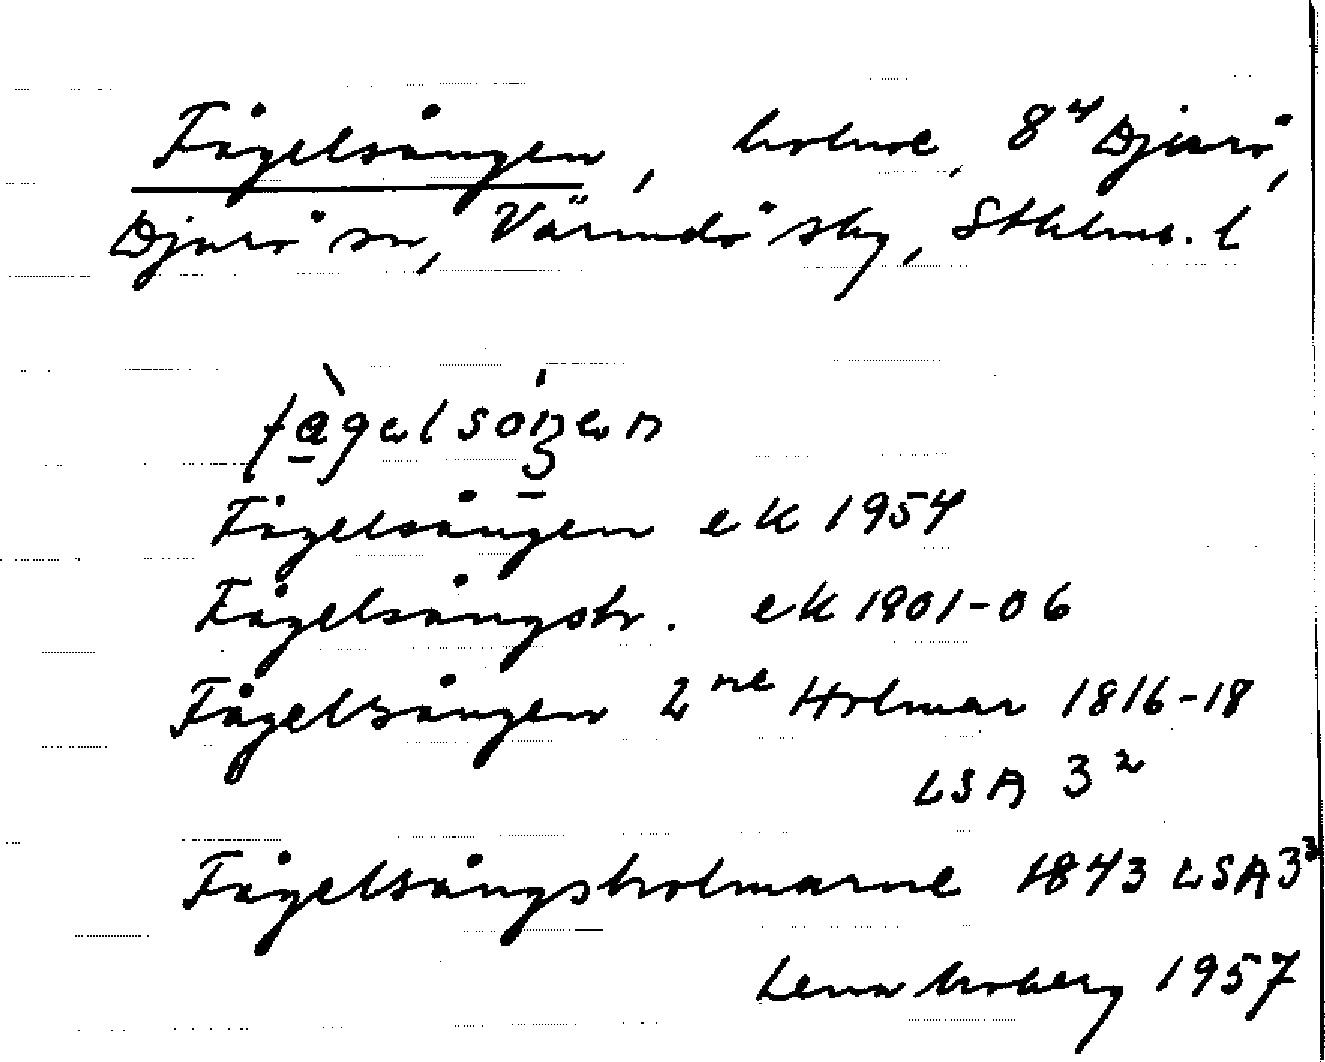 Fågelsången, holme, 8⁴ Djurö,
Djurö sn, Värmdö sky, Sthlms. l
fàgəlsóŋən
Fågelsången ek 1954
Fågelsångsh. ek 1901-06
Fågelsången 2ⁿᵉ Holmar 1816-18
LSA 3²
Fågelsångsholmarne 1843 LSA 3³
Lena Moberg 1957